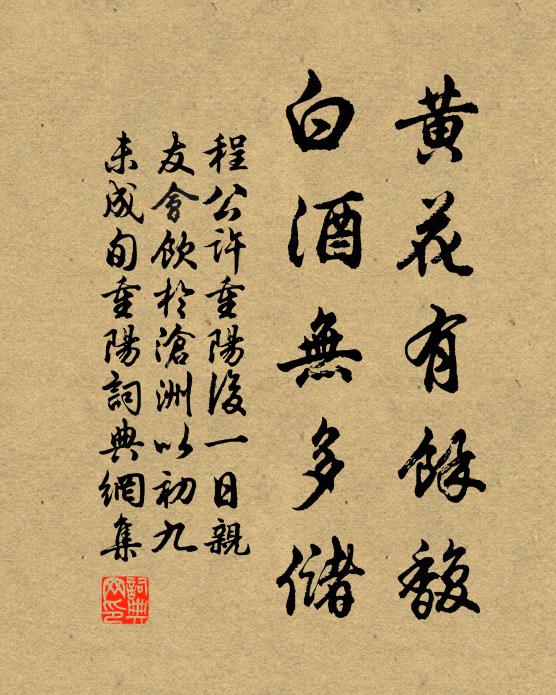 黄花有餘馥
白酒無多儲
程公許重陽後一日親
友會飲於滄洲以初九
未成旬重陽詞典網集
詞典网印